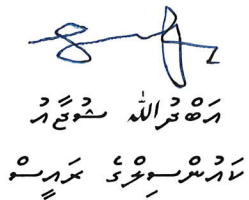 އަބްދުﷲ ޝުޖާއު
ކައުންސިލްގެ ރައީސް